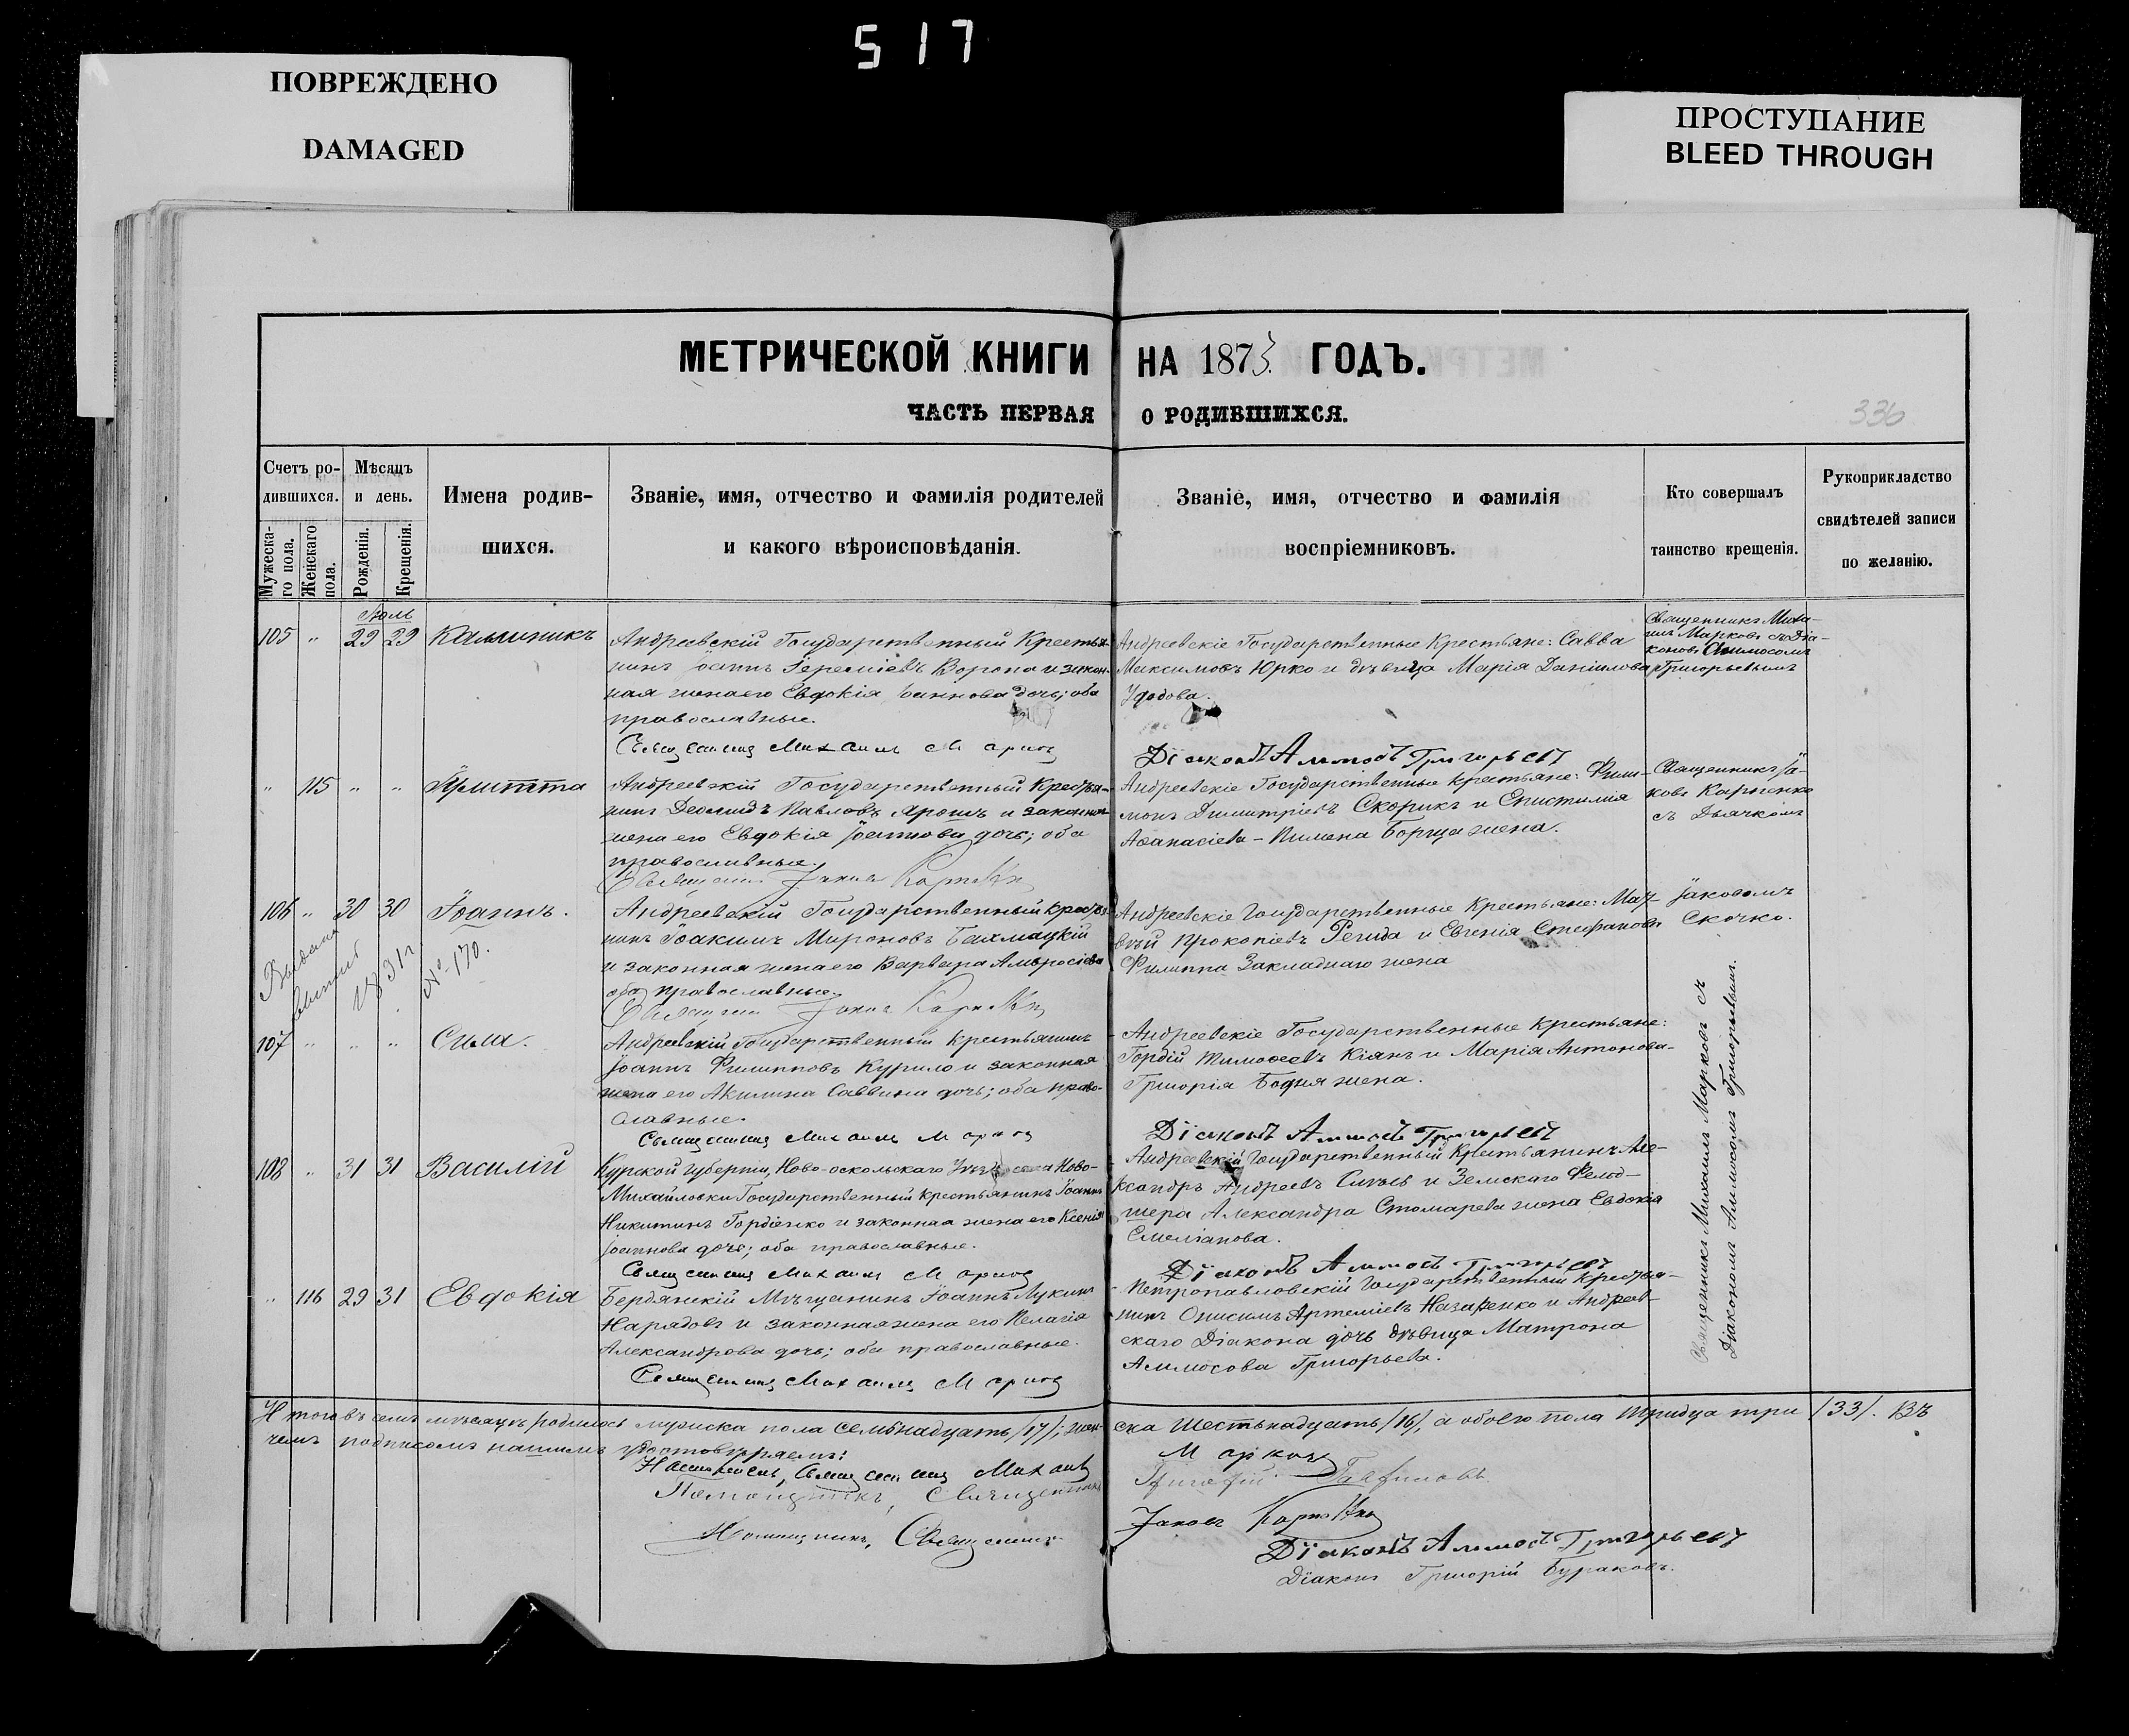 517
ПОВРЕЖДЕНО
DAMAGED
ПРОСТУПАНИЕ
BLEED THROUGH
МЕТРИЧЕСКОЙ КНИГИ НА 1873 ГОДЪ.
ЧАСТЬ ПЕРВАЯ О РОДИВШИХСЯ.
336
Счетъ ро-
дившихся.
Мужеска-
го пола.
Женскаго
пола.
Мѣсяцъ
и день.
Рожденія.
Крещенія.
Имена родив-
шихся.
Званіе, имя, отчество и фамилія родителей
и какого вѣроисповѣданія.
Званіе, имя, отчество и фамилія
воспріемниковъ.
Кто совершалъ
таинство крещенія.
Рукоприкладство
свидѣтелей записи
по желанію.
Іюль
105 " 29 29 Каллиникъ
Андреевскій Государственный Крестья-
нинъ Іоаннъ Іереміевъ Ворона и закон-
ная жена его Евдокія Іоаннова дочь; оба
православные.
Священникъ Михаилъ Марковъ
Андреевскіе Государственные Крестьяне: Савва
Максимовъ Юрко и дѣвица Марія Даніилова
Удодова.
Діаконъ Аммосъ Григорьевъ
Священникъ Миха-
илъ Марковъ съ Діа-
кономъ Аммосомъ
Григорьевымъ
" 115 " " Іулитта
Андреевскій Государственный Крестья-
нинъ Деомидъ Павловъ Ярошъ и законная
жена его Евдокія Іоаннова дочь; оба
православные.
Священникъ Іаковъ Карпенко
Андреевскіе Государственные Крестьяне: Фили-
монъ Димитріевъ Скорикъ и Епистимія
Аѳанасіева - Пимена Борща жена.
Священникъ Іа-
ковъ Карпенко
съ Дьячкомъ
Іаковомъ
Скочко.
106 " 30 30 Іоаннъ.
Андреевскій Государственный Крестья-
нинъ Іоакимъ Мироновъ Бахмацкій
и законная жена его Варвара Амвросіева
оба православные.
Священникъ Іаковъ Карпенко
Андреевскіе Государственные Крестьяне: Мат-
вѣй Прокопіевъ Регида и Евгенія Стефанова
Филиппа Закладнаго жена
№ 170.
107 " " " Сила.
Андреевскій Государственный Крестьянинъ
Іоаннъ Филипповъ Курило и законная
жена его Акилина Саввина дочь; оба право-
славные.
Священникъ Михаилъ Марковъ
Андреевскіе Государственные Крестьяне:
Гордій Тимоѳеевъ Кіянъ и Марія Антонова-
Григорія Бодня жена.
Діаконъ Аммосъ Григорьевъ
Священникъ Михаилъ Марковъ съ
Діакономъ Аммосомъ Григорьевымъ.
108 " 31 31 Василій
Курской губерніи, Ново-оскольскаго Уѣзда села Ново-
Михайловки Государственный Крестьянинъ Іоаннъ
Никитинъ Гордіенко и законная жена его Ксенія
Іоаннова дочь; оба православные.
Священникъ Михаилъ Марковъ
Андреевскій Государственный Крестьянинъ Але-
ксандръ Андреевъ и Земскаго Фельд-
шера Александра Стомарева жена Евдокія
Емеліанова.
Діаконъ Аммосъ Григорьевъ
" 116 29 31 Евдокія
Бердянскій Мѣщанинъ Іоаннъ Лукинъ
Нарядовъ и законная жена его Пелагія
Александрова дочь; оба православные.
Священникъ Михаилъ Марковъ
Петропавловскій Государственный Крестья-
нинъ Онисимъ Артеміевъ Назаренко и Андреев-
скаго Діакона дочь дѣвица Матрона
Аммосова Григорьева.
Итого въ семъ мѣсяцѣ родилось мужеска пола семьнадцать /17/; жен-
ска Шестьнадцать /16/, а обоего пола тридцать три /33/. Въ
чемъ подписомъ нашимъ удостовѣряемъ:
Настоятель, Священникъ Михаилъ Марковъ
Помощникъ, Священникъ Григорій Гавриловъ
Помощникъ, Священникъ Іаковъ Карпенко
Діаконъ Аммосъ Григорьевъ
Діаконъ Григорій Бураковъ.